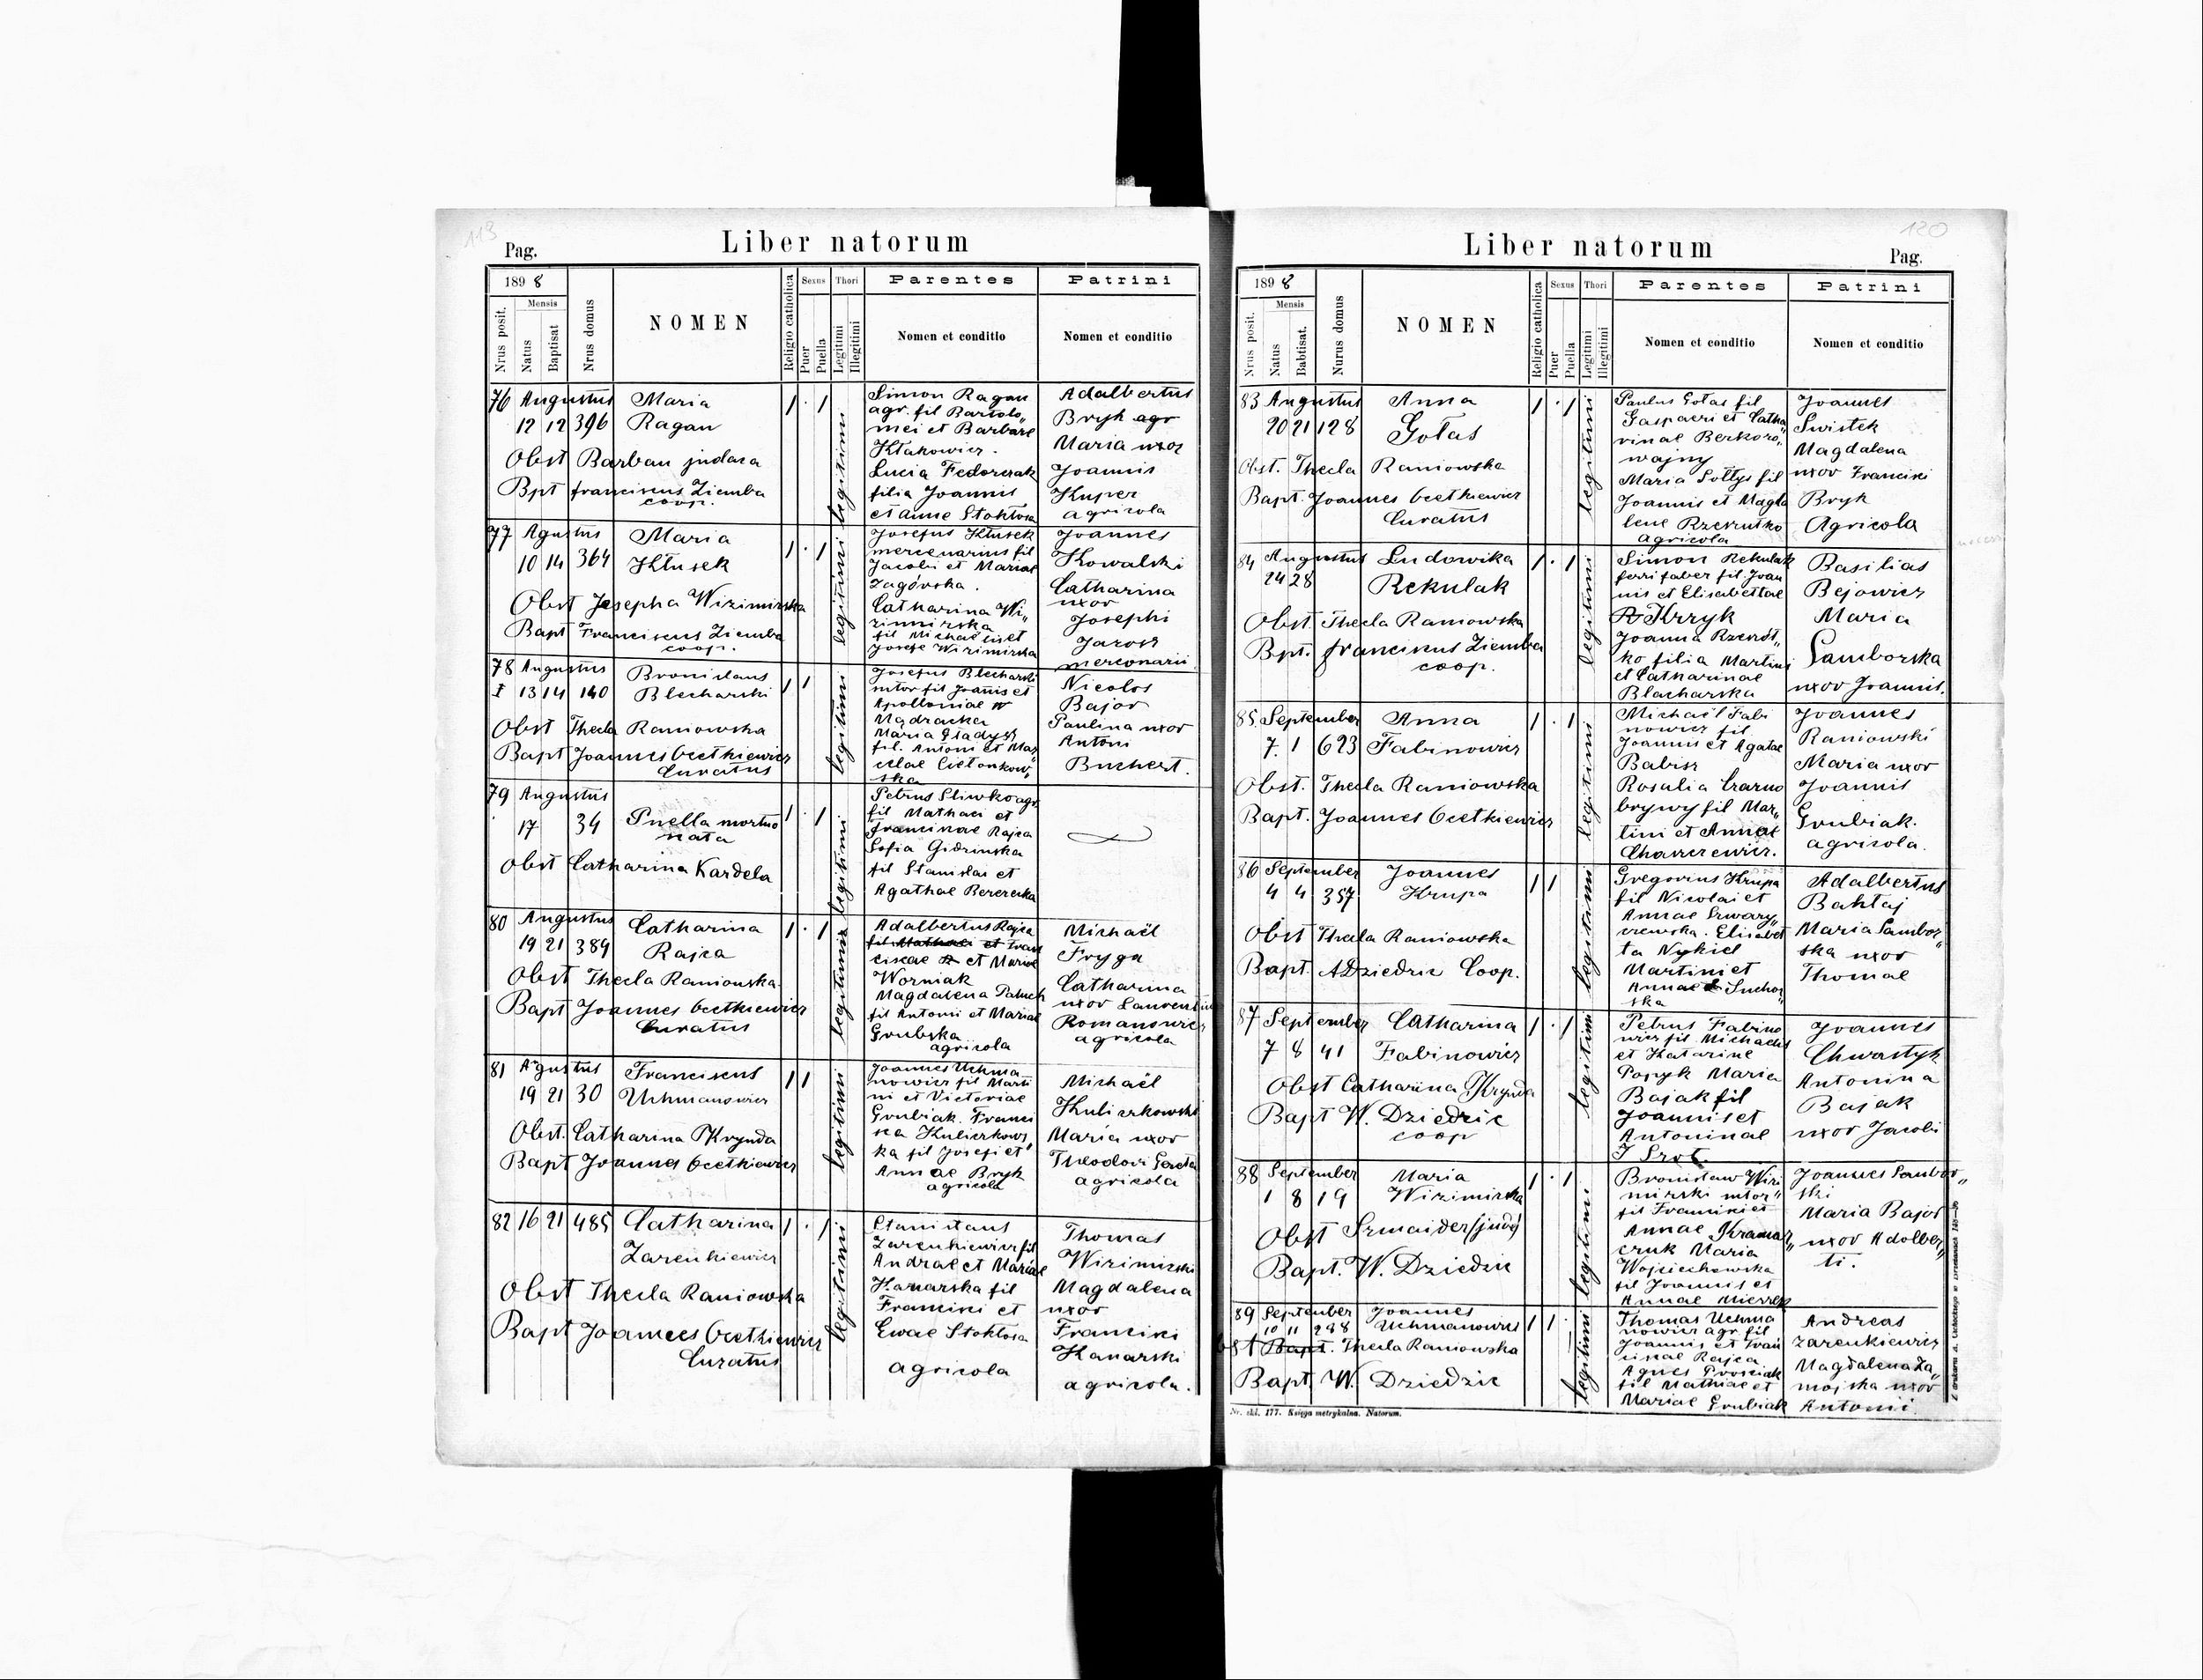 119
Pag.
Liber natorum
1898
Mensis
Nrus posit.
Natus
Baptisat
Nrus domus
NOMEN
Religio catholica
Sexus
Puer
Puella
Thori
Legitimi
Illegitimi
Parentes
Nomen et conditio
Patrini
Nomen et conditio
76 Augustus
12 12 396
Maria
Ragan
1 · 1
legitimi
Obst Barbau judaca
Bpt franciscus Ziemba
coop.
Simon Ragan
agr. fil Bartolo„
mei et Barbare
Kłakowicz.
Lucia Fedorczak
filia Joannis
et Anne Stokłosa
Adalbertus
Bryk agr
Maria uxor
Joannis
Kuper
agricola
77 Agustus
10 14 364
Maria
Kłusek
1 · 1
legitimi
Obst Josepha Wizimirska
Bapt Franciscus Ziemba
coop.
Josefus Kłusek
mercenarius fil
Jacobi et Mariae
Zagórska.
Catharina Wi„
zimirska
fil Michaelis et
Josefe Wizimirska
Joannes
Kowalski
Catharina
uxor
Josephi
Jarosz
merconarii
78 Augustus
I 13 14 140
Bronislaus
Blecharski
1 1
legitimi
Obst Thecla Raniowska
Bapt Joannes Ocetkiewicz
Curatus
Josefus Blecharski
mtor fil Joanis et
Apolloniae
Mądracka
Maria Gladysz
fil. Antoni et Mar
Nicolos
Bajor
Paulina uxor
Antoni
Buchert.
79 Augustus
17 34
Puella mortuo
nata
1 · 1
legitimi
Obst Catharina Kardela
Petrus Sliwko agr
fil Mathaei et
Franciscae Rajca
Sofia Gidzinska
fil Stanislai et
Agathae Berezecka
80 Augustus
19 21 389
Catharina
Rajca
1 · 1
legitimi
Obst Thecla Raniowska.
Bapt Joannes Ocetkiewicz
Curatus
Adalbertus Rajca
fil Mathaei et Fran
ciscae et Mariae
Worniak
Magdalena Paluch
fil Antonii et Mariae
Grubska
agricola
Michaël
Fryga
Catharina
uxor Laurentii
Romanowicz
agricola
81 Agustus
19 21 30
Franciscus
Uchmanowicz
1 1
legitimi
Obst. Catharina Krynda
Bapt Joannes Ocetkiewicz
Joannes Uchma
nowicz fil Marti
ni et Victoriae
Grubiak. Franci
sca Kulczkows„
ka fil Josefi et
Annae Bryk
agricola
Michaël
Maria uxor
Theodori
agricola
82 16 21 485
Catharina
Zarenkiewicz
1 · 1
legitimi
Obst Thecla Raniowska
Bapt Joannes Ocetkiewicz
Curatus
Stanislaus
Zarenkiewicz fil
Andrae et Mariae
Kanarska fil
Francisci et
Ewae Stokłosa
agricola
Thomas
Wizimirski
Magdalena
uxor
Francisci
Kanarski
agricola.
120
Liber natorum
Pag.
1898
Mensis
Nrus posit.
Natus
Babtisat.
Nurus domus
NOMEN
Religio catholica
Sexus
Puer
Puella
Thori
Legitimi
Illegitimi
Parentes
Nomen et conditio
Patrini
Nomen et conditio
83 Augustus
20 21 128
Anna
Gołas
1 · 1
legitimi
Obst. Thecla Raniowska
Bapt. Joannes Ocetkiewicz
Curatus
Paulus Gołas fil
Gasparri et Catha„
rinae Berkoro„
wajny
Maria Sołtys fil
Joannis et Magda
lene Rzeszutko
agricola
Joannes
Swistek
Magdalena
uxor Francisci
Bryk
Agricola
84 Augustus
24 28
Ludowika
Rekulak
1 · 1
legitimi
Obst Thecla Raniowska
Bpt. franciscus Ziemba
coop.
Simon Rekulak
ferri faber fil Joan
nis et Elisabettae
Krzyk
Joanna Rzeszut„
ko filia Martini
et Catharinae
Blacharska
Basilias
Bejowicz
Maria
Samborska
uxor Joannis.
85. September
7. 1 623
Anna
Fabinowicz
1 · 1
legitimi
Obst. Thecla Raniowska
Bapt. Joannes Ocetkiewicz
Michaël Fabi
nowicz fil
Joannis et Agatae
Babisz
Rosalia Czarno
brywy fil Mar„
tini et Annae
Joannes
Raniowski
Maria uxor
Joannis
Grubiak.
agricola.
86 September
4 4 357
Joannes
Krupa
1 1
legitimi
Obst Thecla Raniowska
Bapt. A Dziedzic Coop.
Gregorius Krupa
fil Nicolai et
Annae Szwary„
czewska. Elisabet
ta Nykiel
Martini et
Annae Suchor„
ska
Adalbertus
Bakłaj
Maria Sambor„
ska uxor
Thomae
87 September
7 8 41
Catharina
Fabinowicz
1 · 1
legitimi
Obst Catharina Krynda
Bapt W. Dziedzic
coop
Petrus Fabino
wicz fil Michaelis
et Katarine
Popyk Maria
Bajak fil
Joannis et
Antoninae
Joannes
Chwastyk
Antonina
Bajak
uxor Jacobi
88 September
1 8 19
Maria
Wizimirska
1 · 1
legitimi
Obst Szmaider (judaj)
Bapt. W. Dziedzic
Bronislaw Wizi
mirski mtor„
fil Francisci et
Annae Kramar„
czuk Maria
Wojciechowska
fil Joannis et
Annae
Joannes Sambor„
ski
Maria Bajor
uxor Adolber„
ti.
89 September
10 11 298
Joannes
Uchmanowicz
1 1
legitimi
Obst Bapt. Thecla Raniowska
Bapt. W. Dziedzic
Thomas Uchma
nowicz agr. fil
Joannis et Fran
ciscae Rajca
Agnes Prosciak
fil Mathiae et
Mariae Grubiak
Andreas
Zarenkiewicz
Magdalena Za„
mojska uxor
Antonii.
Nr. skl. 177. Księga metrykalna. Natorum.